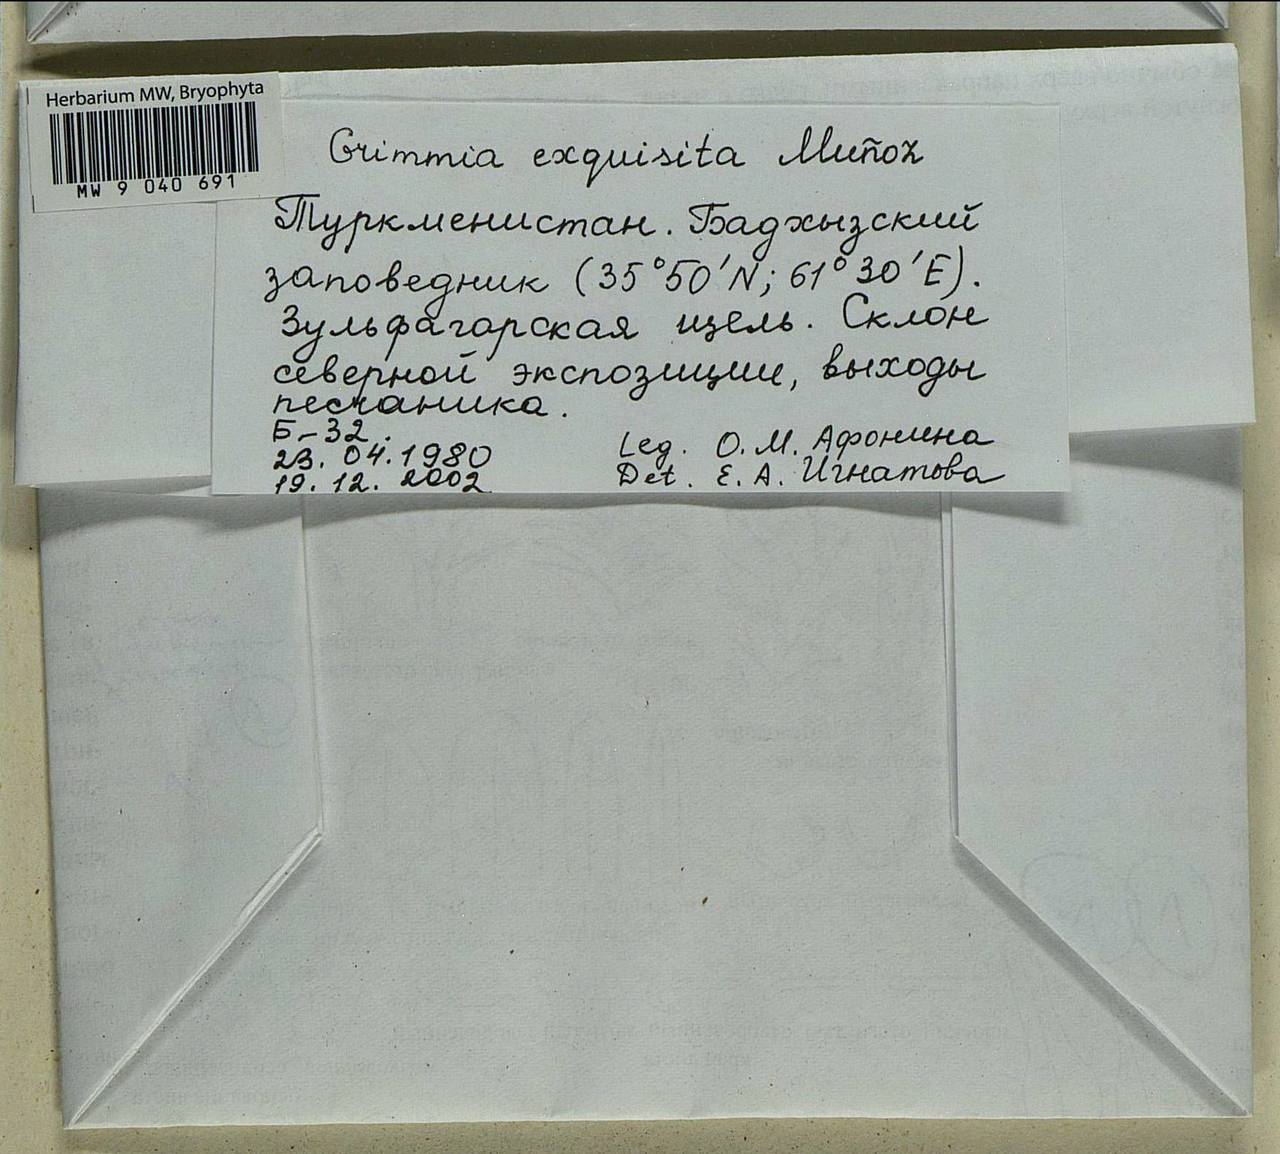 Herbarium MW, Bryophyta
MW 9 040 691
Grimmia exquisita Muñoz
Туркменистан. Бадхызский
заповедник (35°50'N; 61°30'E).
Зульфагарская щель. Склон
северной экспозиции, выходы
песчаника.
Б-32.
23.04.1980
Leg. О.М. Афонина
19.12.2002
Det. Е.А. Игнатова